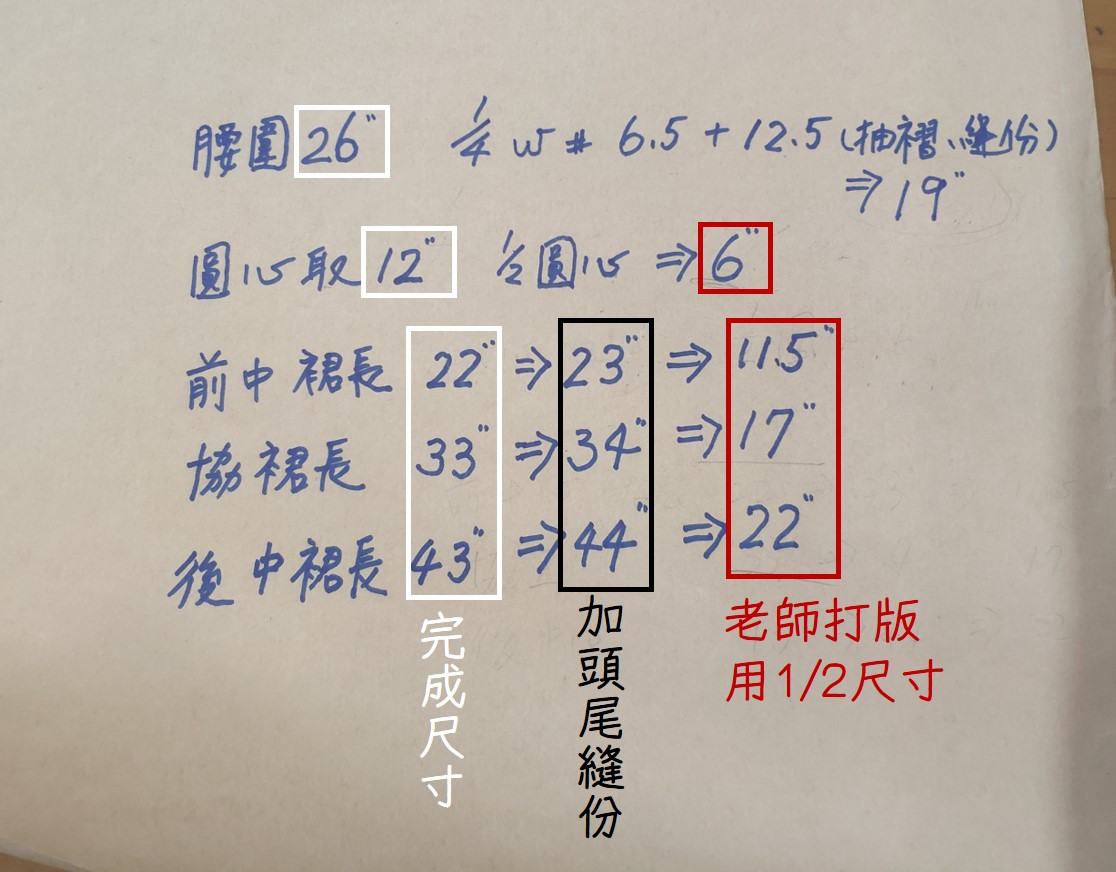 腰圍26" 1/4 W # 6.5 + 12.5 (抽褶、縫份)
⇒ 19"
圓心取12" 1/2圓心 ⇒ 6"
前中裙長 22" ⇒ 23" ⇒ 11.5"
協裙長 33" ⇒ 34" ⇒ 17"
後中裙長 43" ⇒ 44" ⇒ 22"
完成尺寸
加頭尾縫份
老師打版
用1/2尺寸